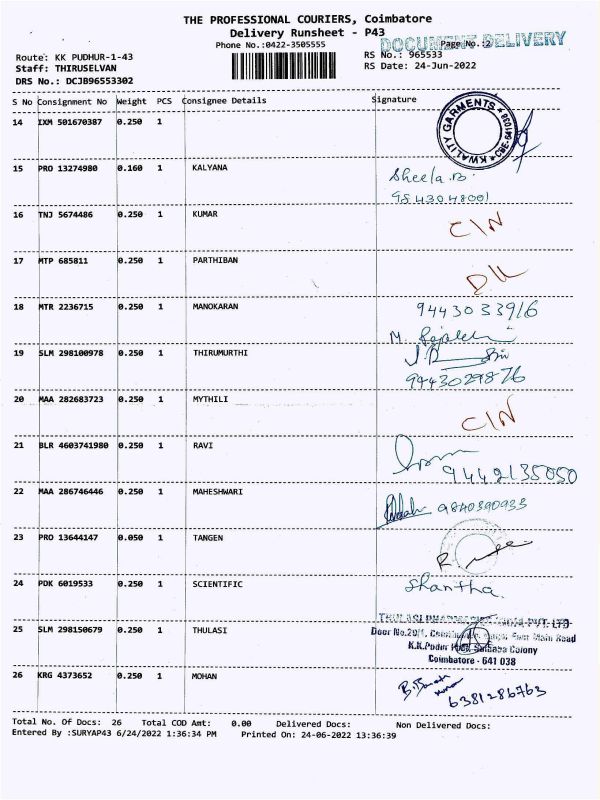 THE PROFESSIONAL COURIERS, Coimbatore
Delivery Runsheet - P43
Phone No.:0422-3505555
DOCUMENT DELIVERY
Page No.:2
Route: KK PUDHUR-1-43
RS No.: 965533
Staff: THIRUSELVAN
RS Date: 24-Jun-2022
DRS No.: DCJB96553302
S No Consignment No Weight PCS Consignee Details Signature
14 IXM 501670387 0.250 1
KWALITY GARMENTS
15 PRO 13274980 0.160 1 KALYANA
Sheela.B.
9843048001
16 TNJ 5674486 0.250 1 KUMAR
C/N
17 MTP 685811 0.250 1 PARTHIBAN
D/L
18 MTR 2236715 0.250 1 MANOKARAN 9443033916
19 SLM 298100978 0.250 1 THIRUMURTHI
9443029876
20 MAA 282683723 0.250 1 MYTHILI
C/N
21 BLR 4603741980 0.250 1 RAVI
9442135050
22 MAA 286746446 0.250 1 MAHESHWARI
9840390933
23 PRO 13644147 0.050 1 TANGEN
24 PDK 6019533 0.250 1 SCIENTIFIC
Shantha.
PVT. LTD
25 SLM 298150679 0.250 1 THULASI
Door No.20/1, Main Road
K.K.Pudur Saibaba Colony
Coimbatore - 641 038
26 KRG 4373652 0.250 1 MOHAN
6381286763
Total No. Of Docs: 26 Total COD Amt: 0.00 Delivered Docs: Non Delivered Docs:
Entered By :SURYAP43 6/24/2022 1:36:34 PM Printed On: 24-06-2022 13:36:39